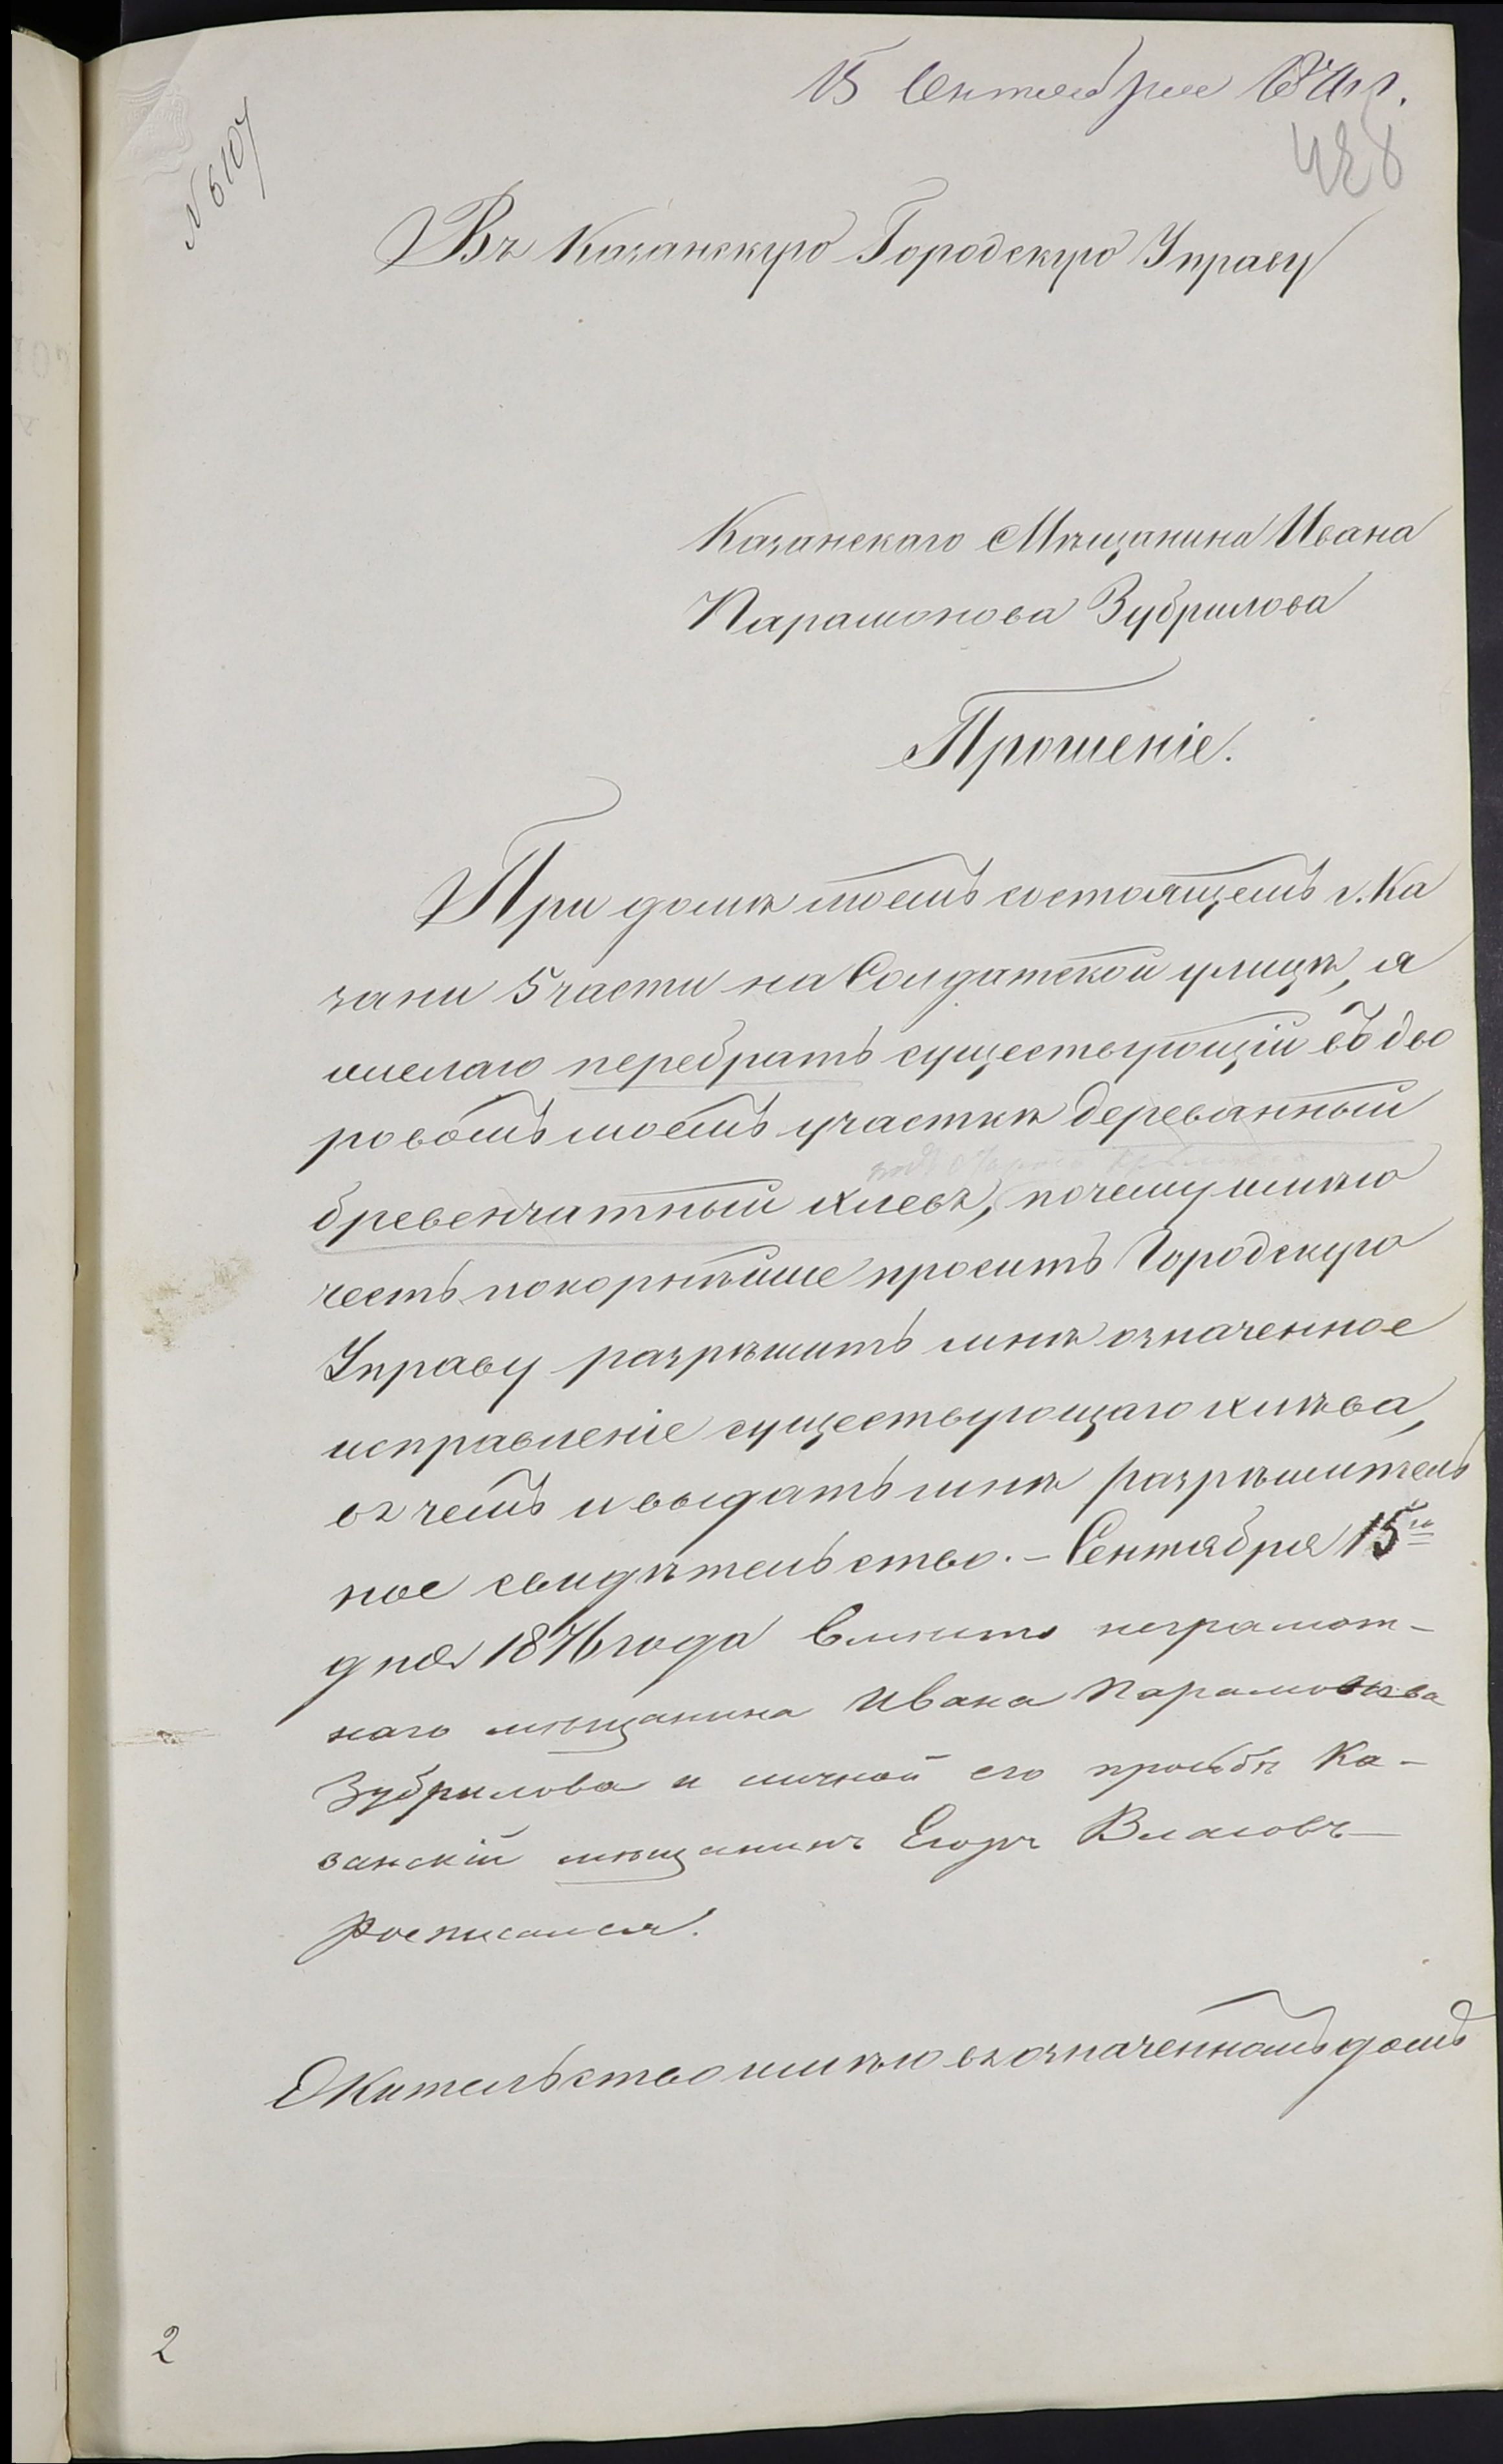 15 Сентября 1876 г.
428
№ 6107
Въ Казанскую Городскую Управу
Казанскаго Мѣщанина Ивана
Парамонова Зубрилова
Прошеніе.
При домѣ моемъ состоящемъ г. Ка
зани 5 части на Солдатской улицѣ, я
желаю перебрать существующій въ дво
ровомъ моемъ участкѣ деревянный
бревенчатный хлевъ, почему имѣю
честь покорнѣйше просить Городскую
Управу разрѣшить мнѣ означенное
исправленіе существующаго хлѣва,
въ чемъ и выдать мнѣ разрѣшитель
ное свидѣтельство. – Сентября 15го
дня 1876 года Вместо неграмот-
наго мѣщанина Ивана Парамонова
Зубрилова и личной его прозьбѣ Ка-
занскій мѣщанинъ Егоръ Власовъ
росписался.
Жительство имѣю въ означенномъ домѣ
2